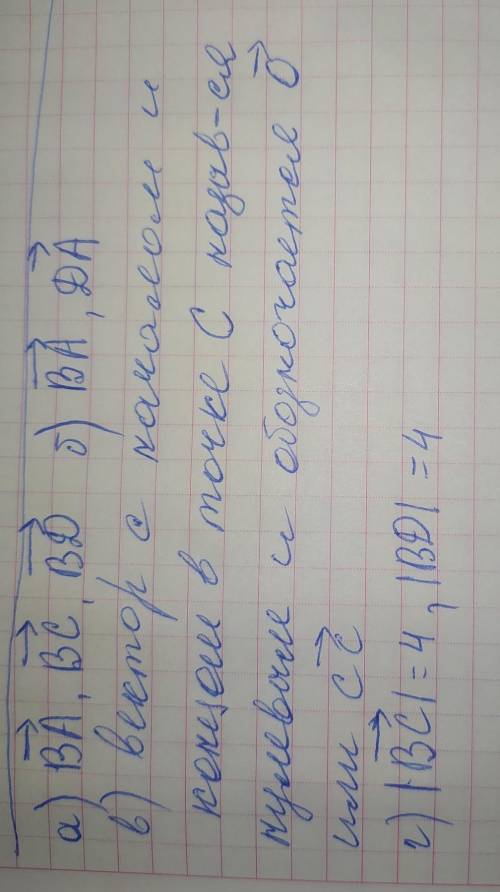 а) B͞A⃗, BC⃗, BD⃗ б) BA⃗, DA⃗
в) вектор с началом и
концом в точке C назыв-ся
нулевым и обозначается O⃗
или CC⃗
г) |BC⃗| = 4, |BD| = 4